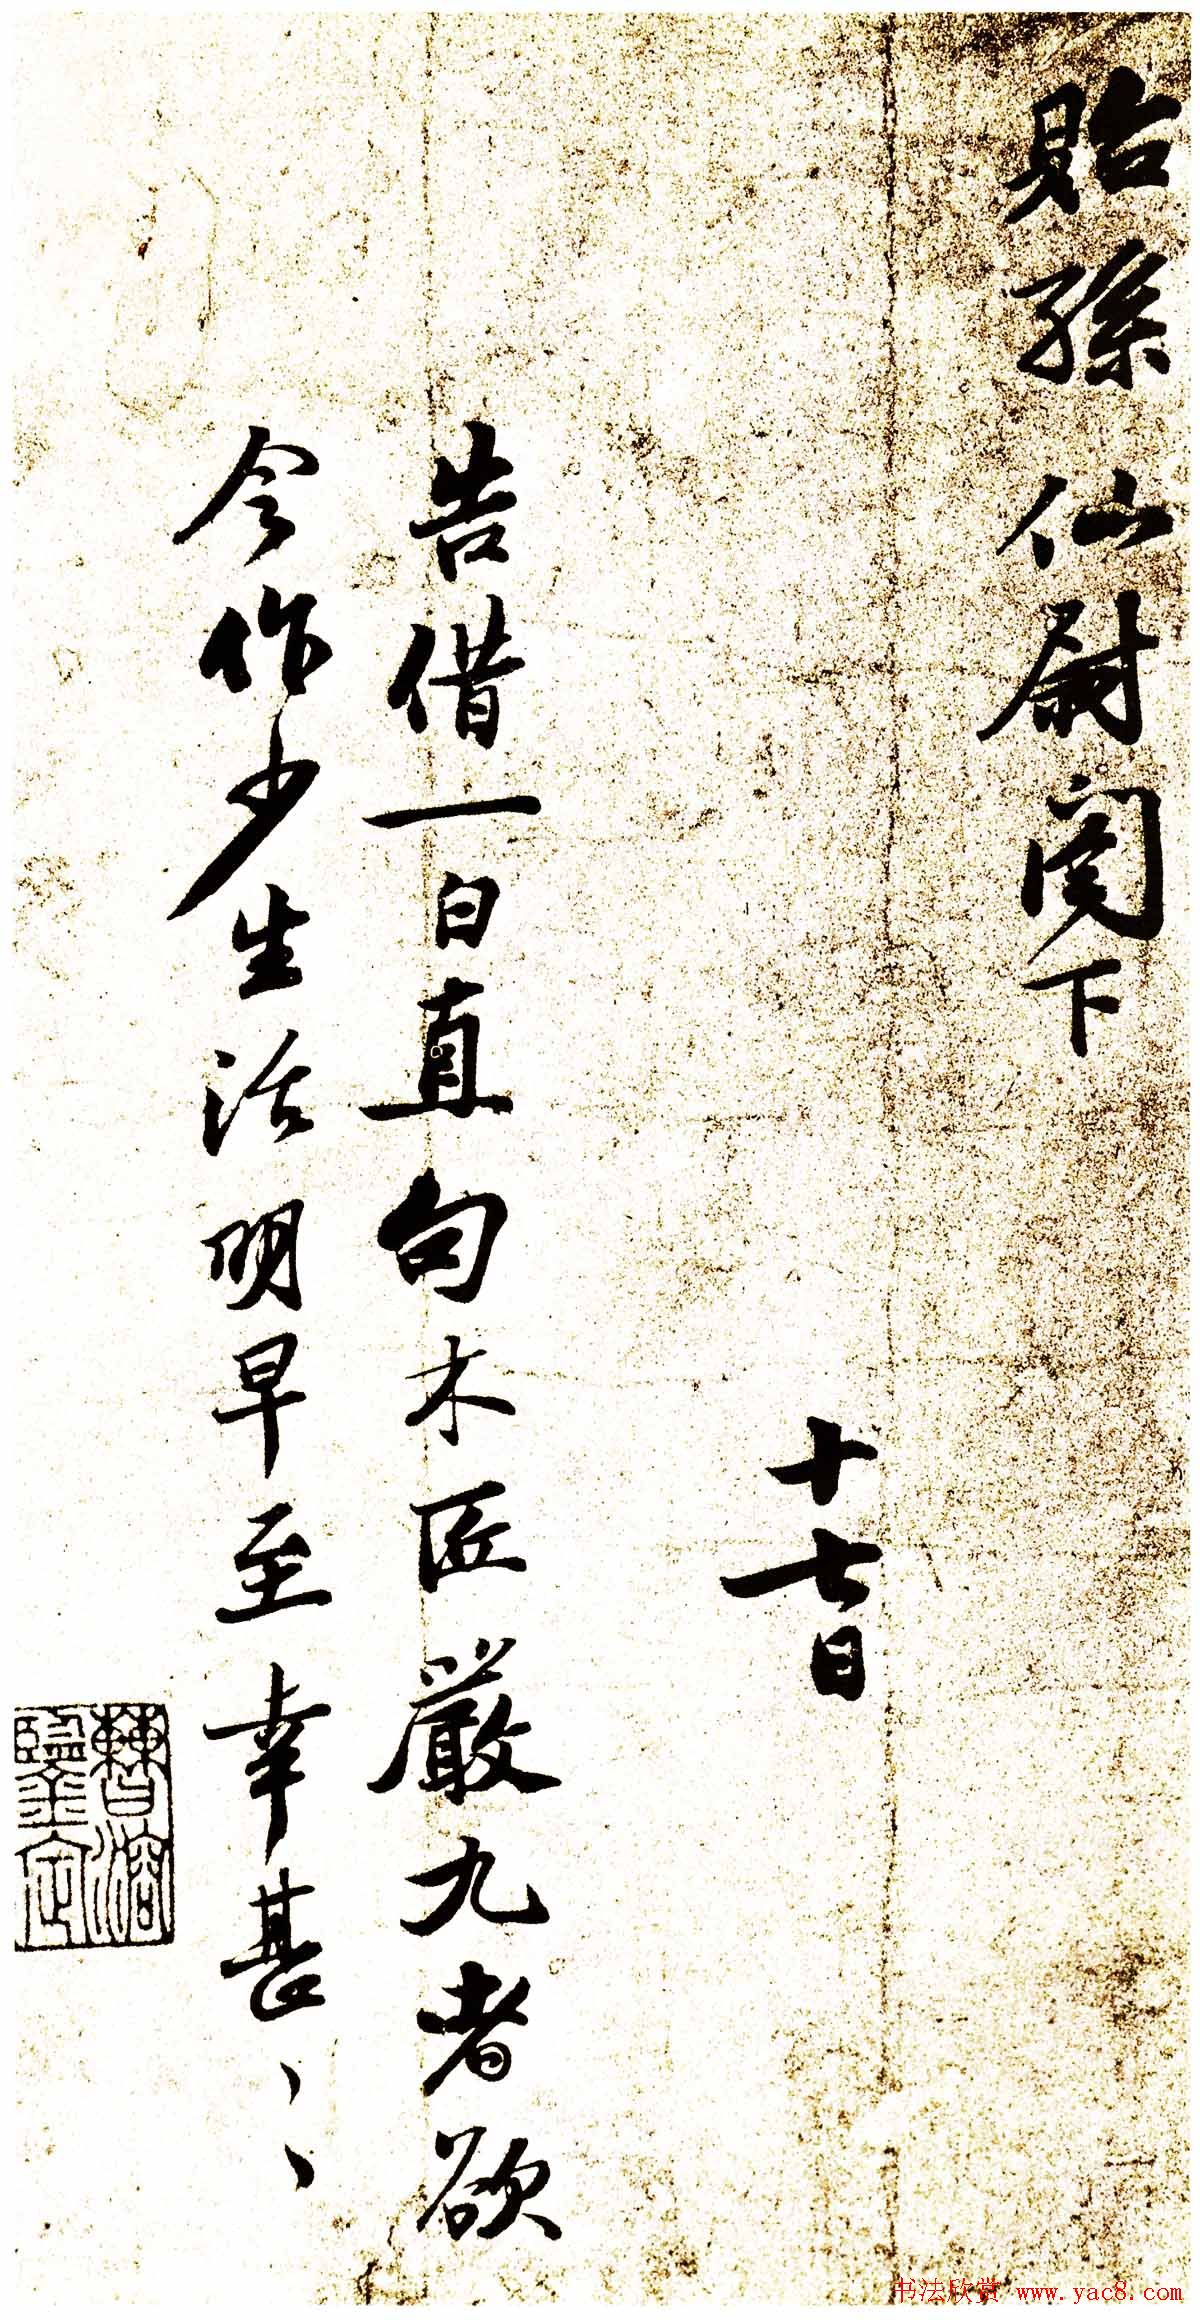 貽孫仙尉閣下
十七日
告借一白直句木匠嚴九者欲
令作少生活明早至幸甚、、
曹溶
鑒定
书法欣赏 www.yac8.com